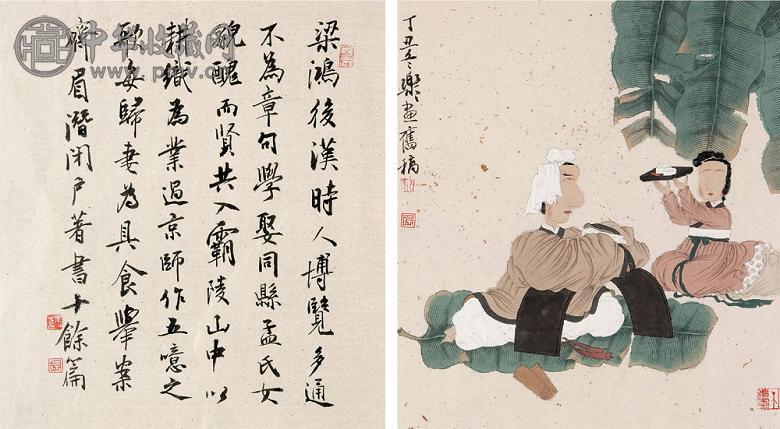 中华收藏网
梁鴻後漢時人博覽多通
不為章句學娶同縣孟氏女
貌醜而賢共入霸陵山中以
耕織為業過京師作五噫之
歌每歸妻為具食舉案
齊眉潛閉户著書十餘篇
丁丑冬樂畫舊稿